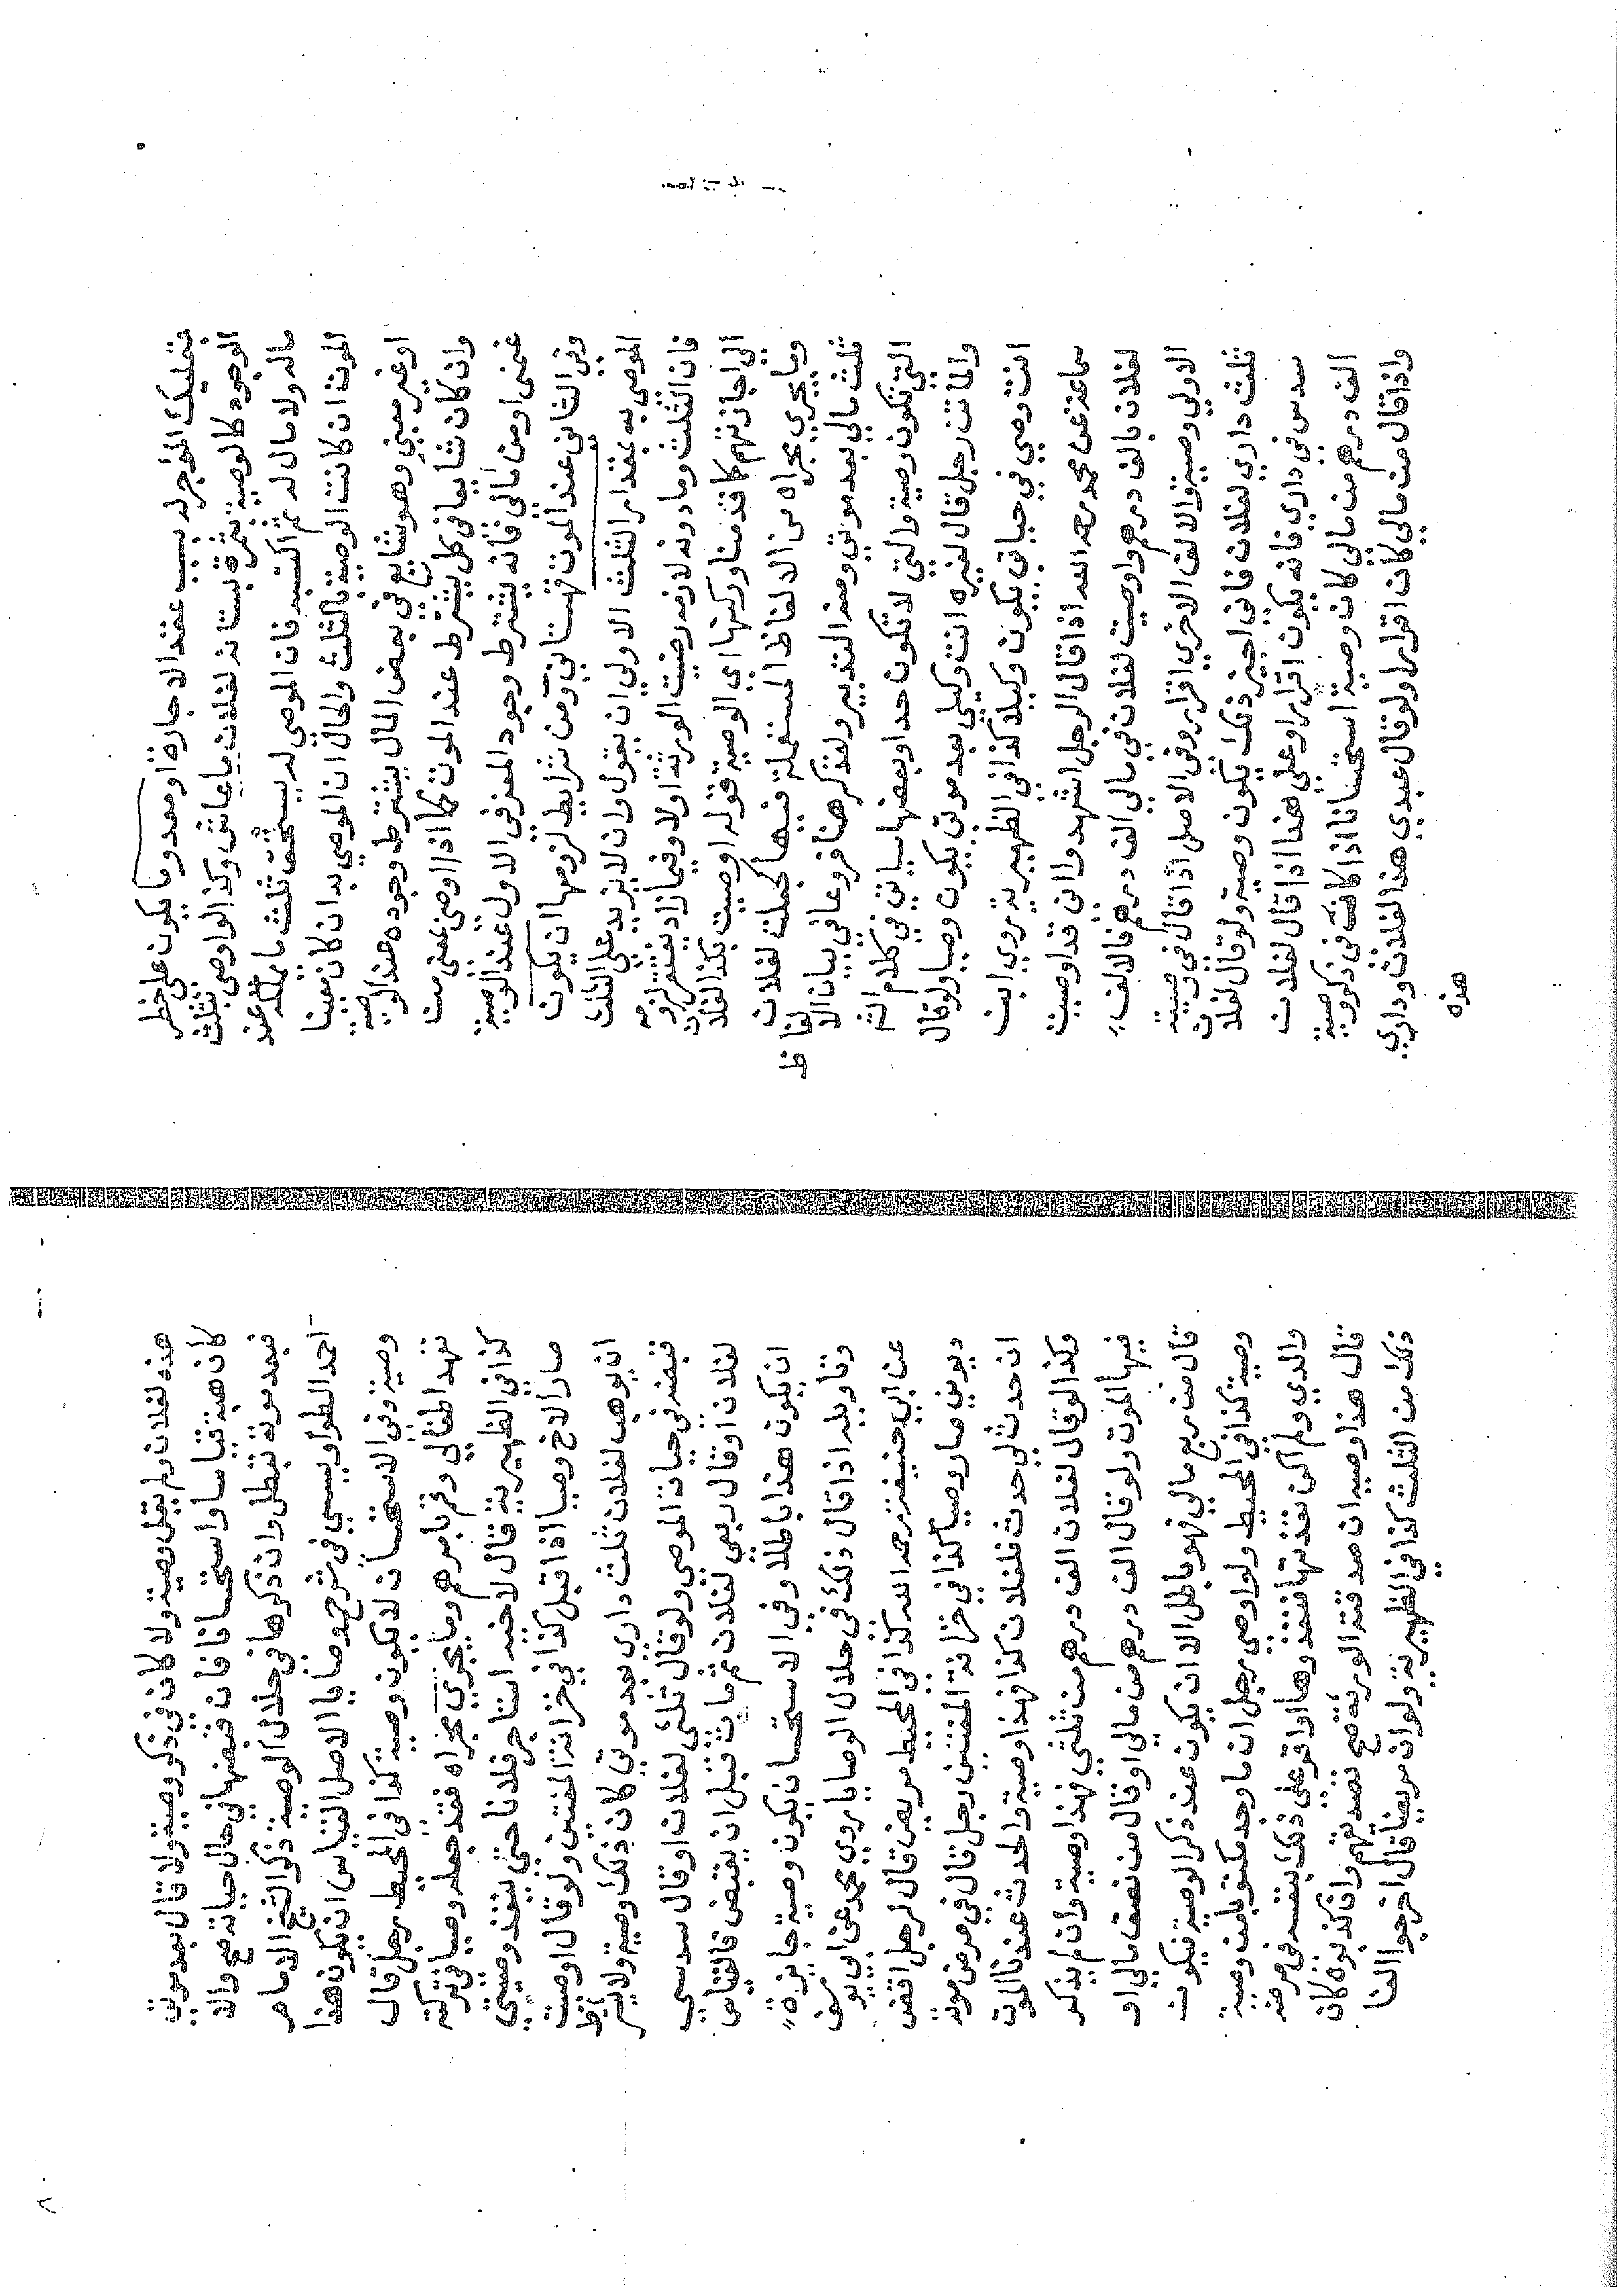 فتمليك المؤجر له بسبب عقد الاجارة او معد وما يكون على خطر
الوجود كالوصية بثمرة بستانه لفلان ما عاش وكذا لو اوصى بثلث
ماله ولا مال له ثم اكتسبه فان الموصى له يستحق ثلث ما يملكه عند
الموت ان كانت الوصية بالثلث والحال ان الموصي به ان كان معينا
او غير معين وهو شايع في بعض المال يشترط وجوده عند الوصية
وان كان شايعا في كل يشترط عند الموت كما اذا اوصى بغنمى من
غنمى او من مالي فانه يشترط وجود المعز في الاول عند الوصية
وفي الثاني عند الموت قهستاني ومن شرايط لزومها ان يكون
الموصى به بمقدار الثلث الاولى ان يقول وان لا يزيد على الثلث
فان الثلث وما دونه لازمه رضيت الورثة او لا وفيما زاد يفتقر لزومه
الى اجازتهم كما قدمنا وركنها اي الوصية قوله اوصيت بكذا لفلان
وما يجري مجراه من الالفاظ المستعملة فيها كجعلت لفلان
ثلث مالي بعد موتي ومنه التدبير ولنذكر هنا فروعا في بيان الالفاظ
التي تكون وصية والتي لا تكون حدا وبعضها سياتي في كلام الشم
والمأتت رجل قال لغيره انت وكيلي بعد موتي يكون وصيا ولو قال
انت وصي في حياتي يكون وكيلا كذا في الظهيرية روي ابن
سماعة عن محمد رحمه الله اذا قال الرجل اشهدوا اني قد اوصيت
لفلان بالف درهم واوصيت لفلان في مالي الف درهم فالالف
الاولى وصية والالف الاخرى اقرار وفي الاصل اذا قال في وصيته
ثلث داري لفلان فاني اجيز ذلك يكون وصية ولو قال لفلان
سدس في داري فانه يكون اقرارا وعلى هذا اذا قال لفلان
الف درهم من مالي كان وصية استحسانا اذا كانت في ذكر وصية
واذا قال من مالي كان اقرارا ولو قال عبدي هذا لفلان وداري
هذه
هذه لفلان ولم يقل وصية ولا كان في ذكر وصية ولا قال بعد موتي
كان هبة قياسا واستحسانا فان قبضها في حال حياته صح والا
فبعد موته تبطل وان ذكرها في خلال الوصية ذكر الشيخ الامام
احمد الطواويسي في شرح وصايا الاصل القياس ان يكون هذا
وصية وفي الاستحسان لا يكون وصية كذا في المحيط رجل قال
تعهد اطفالي وقم بامرهم وما يجري مجراه فقد جعله وصيا في تركته
كذا في الظهيرية قال لاخيه استاجر فلانا حتى ينفذ وصيتي
صار الاخ وصيا اذا قبل كذا في خزانة المفتين ولو قال اوصيت
ان يوهب لفلان ثلث داري بعد موتي كان ذلك وصية ولا يشترط
قبضه في حياة الموصي ولو قال ثلثى لفلان او قال سدسي
لفلان او قال ربعي لفلان ثم مات قبل ان يقبض فالقياس
ان يكون هذا باطلا وفي الاستحسان يكون وصية جايزة
وتاويله اذا قال ذلك في خلال الوصايا روي محمد عن ابي يوسف
عن ابي حنيفة رحمه الله كذا في المحيط مريض قال لرجل اقض
ديوني صار وصيا كذا في خزانة المفتين رجل قال في مرض موته
ان حدث لي حدث فلفلان كذا فهذا وصية والحدث عندنا الموت
وكذا لو قال لفلان الف درهم من ثلثي فهذا وصية وان لم يذكر
فيها الموت ولو قال الف درهم من مالي او قال من نصف مالي او
قال من ربع مالي فهو باطل الا ان يكون عند ذكر الوصية فيكون
وصية كذا في المحيط ولو اوصى رجل ان ما وجد مكتوبا من وصية
والدي ولم اكن نفذتها فنفذوها او اقر على ذلك بنفسه في مرضه
قال هذا وصية ان صدقته الورثة صح تصديقهم وان كذبوه كان
ذلك من الثلث كذا في الظهيرية ولو ان مريضا قال اخرجوا الفا